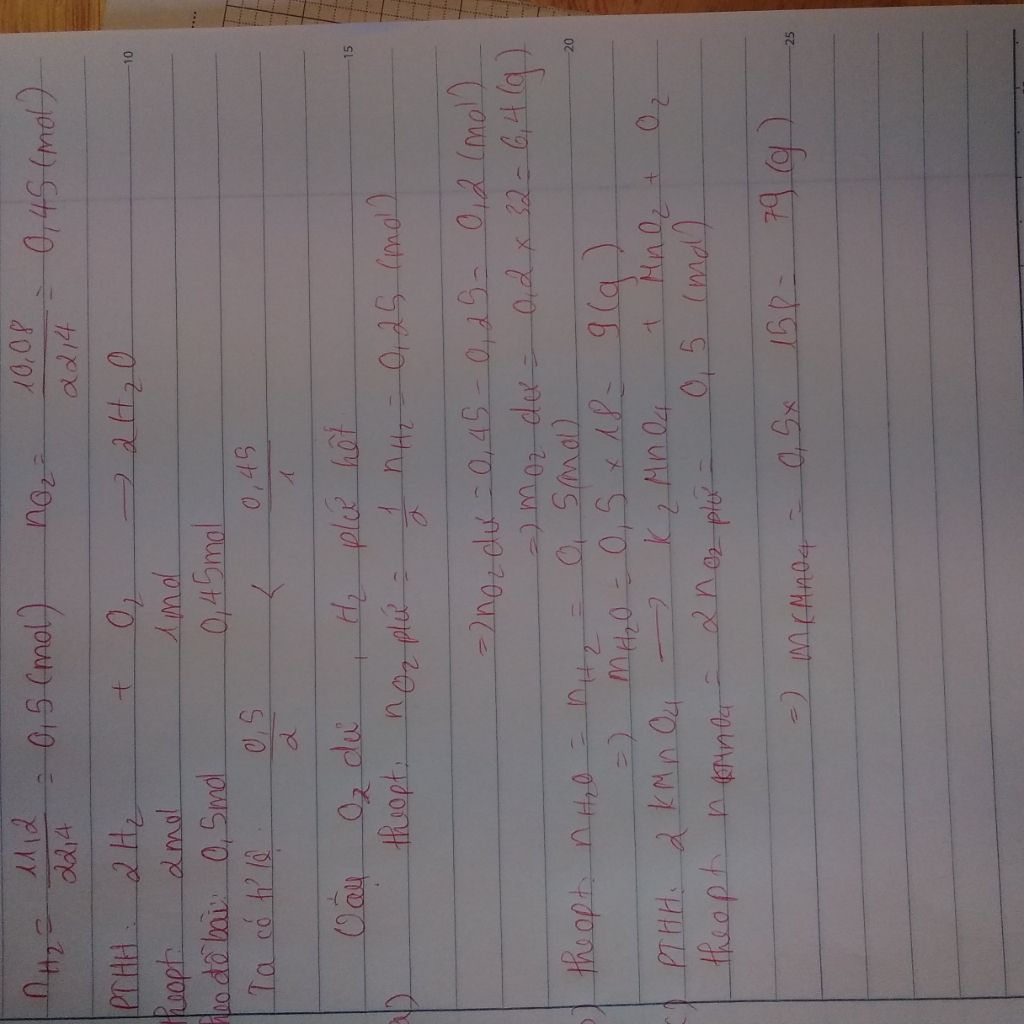 n H₂ = 11,2/22,4 = 0,5 (mol) nO₂ = 10,08/22,4 = 0,45 (mol)
PTHH: 2H₂ + O₂ → 2H₂O
theopt: 2mol 1mol
theo đề bài: 0,5mol 0,45mol
Ta có tỉ lệ: 0,5/2 < 0,45/1
Vậy O₂ dư, H₂ pứ hết
a) theopt: nO₂ pứ = 1/2 nH₂ = 0,25 (mol)
=> nO₂ dư = 0,45 - 0,25 = 0,2 (mol)
=> mO₂ dư = 0,2 × 32 = 6,4 (g)
b) theopt: nH₂O = nH₂ = 0,5 (mol)
=> mH₂O = 0,5 × 18 = 9 (g)
c) PTHH: 2 KMnO₄ → K₂MnO₄ + MnO₂ + O₂
theopt nKMnO₄ = 2nO₂ pứ = 0,5 (mol)
=> mKMnO₄ = 0,5 × 158 = 79 (g)
10
15
20
25